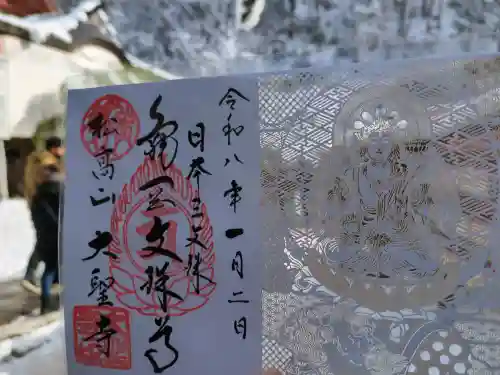 令和八年一月二日
日本三文殊
奉 文殊尊
松高山 大聖寺